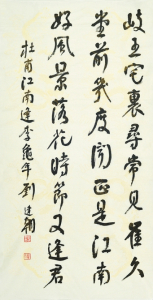 岐王宅裏尋常見崔九
堂前幾度聞正是江南
好風景落花時節又逢君
杜甫江南逢李龜年刘建